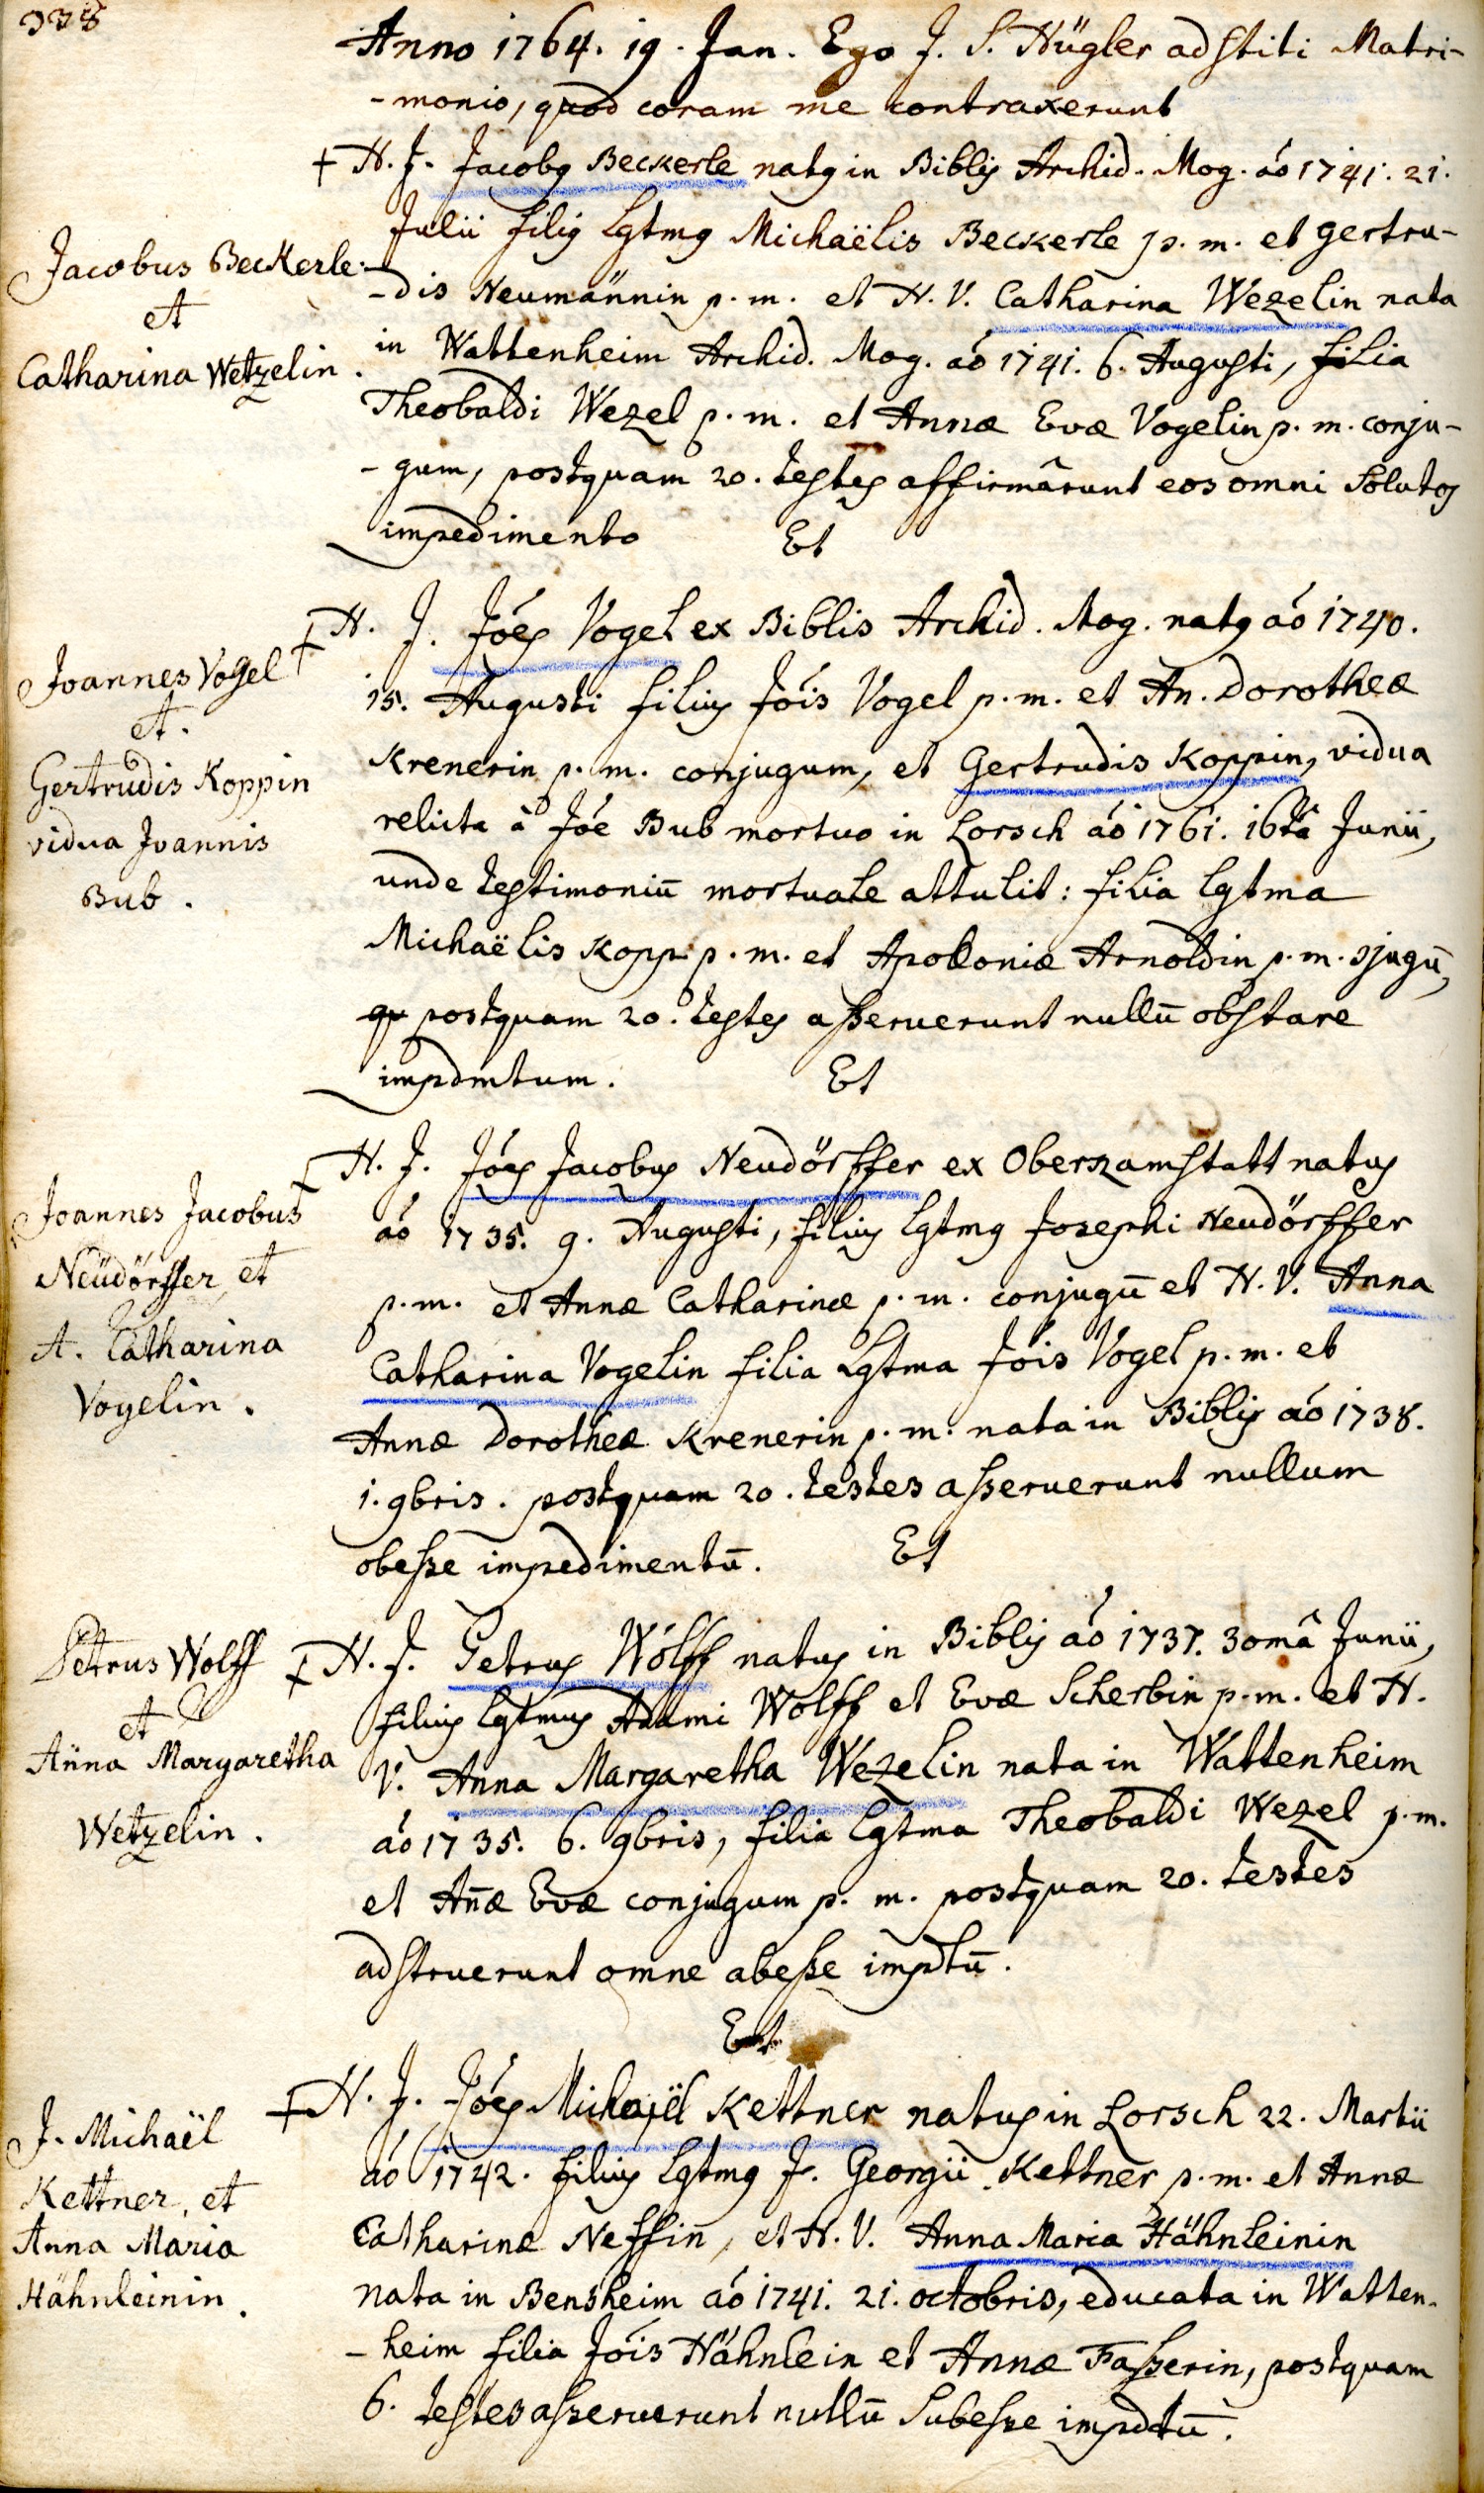 338
Anno 1764. 19. Jan. Ego J. S. Hügler adstiti Matri-
-monio, quod coram me contraxerunt
+ H. J. Jacobg Beckerle natg in Biblis Archid. Mog. aó 1741. 21.
Julii filig lgtmg Michaëlis Beckerle p. m. et gertru-
-dis Neumännin p. m. et H. V. Catharina Wezelin nata
in Wattenheim Archid. Mog. aó 1741. 6. Augusti, filia
Theobaldi Wezel p. m. et Annæ Evæ Vogelin p. m. conju-
-gum, postquam 20. testes affirmârunt eos omni solutos
impedimento Et
Jacobus Beckerle
et
Catharina Wetzelin.
+ H. J. Jóes Vogel ex Biblis Archid. Mog. natg aó 1740.
15. Augusti filius Jóis Vogel p. m. et An. Dorotheæ
Krenerin p. m. conjugum, et Gertrudis Koppin, vidua
relicta â Jóe Bub mortuo in Lorsch aó 1761. 16tâ Junii,
unde testimoniū mortuale attulit: filia lgtma
Michaëlis Kopp p. m. et Apolloniæ Arnoldin p. m. ɔjugū,
qu postquam 20. testes asseruerunt nullū obstare
impdmtum. Et
Joannes Vogel
et.
Gertrudis Koppin
vidua Joannis
Bub.
H. J. Jóes Jacobus Neudörffer ex Oberramstatt natus
aó 1735. 9. Augusti, filius lgtmg Josephi Neudörffer
p. m. et Annæ Catharinæ p. m. conjugū et H. V. Anna
Catharina Vogelin filia Lgtma Jóis Vogel p. m. et
Annæ Dorotheæ Krenerin p. m. nata in Biblis aó 1738.
1. 9bris. postquam 20. testes asseruerunt nullum
obesse impedimentū. Et
Joannes Jacobus
Neüdörffer, et
A. Catharina
Vogelin.
+ H. J. Petrus Wolff natus in Biblis aó 1737. 30mâ Junii,
filius lgtmus Adami Wolff et Evæ Scherbin p. m. et H.
V. Anna Margaretha Wezelin nata in Wattenheim
aó 1735. 6. 9bris, filia lgtma Theobaldi Wezel p. m.
et An̄æ Evæ conjugum p. m. postquam 20. testes
adstruerunt omne abesse impdtū.
Et
Petrus Wolff
et
Anna Margaretha
Wetzelin.
+ H. J. Jóes Michaël Kettner natus in Lorsch 22. Martii
aó 1742. filius lgtmg J. Georgii Kettner p. m. et Annæ
Catharinæ Neffin, et H. V. Anna Maria Hähnleinin
nata in Bensheim aó 1741. 21. octobris, educata in Watten-
-heim filia Jóis Hähnlein et Annæ Fasserin, postquam
6. testes asseruerunt nullū subesse impdtū.
J. Michaël
Kettner, et
Anna Maria
Hähnleinin.